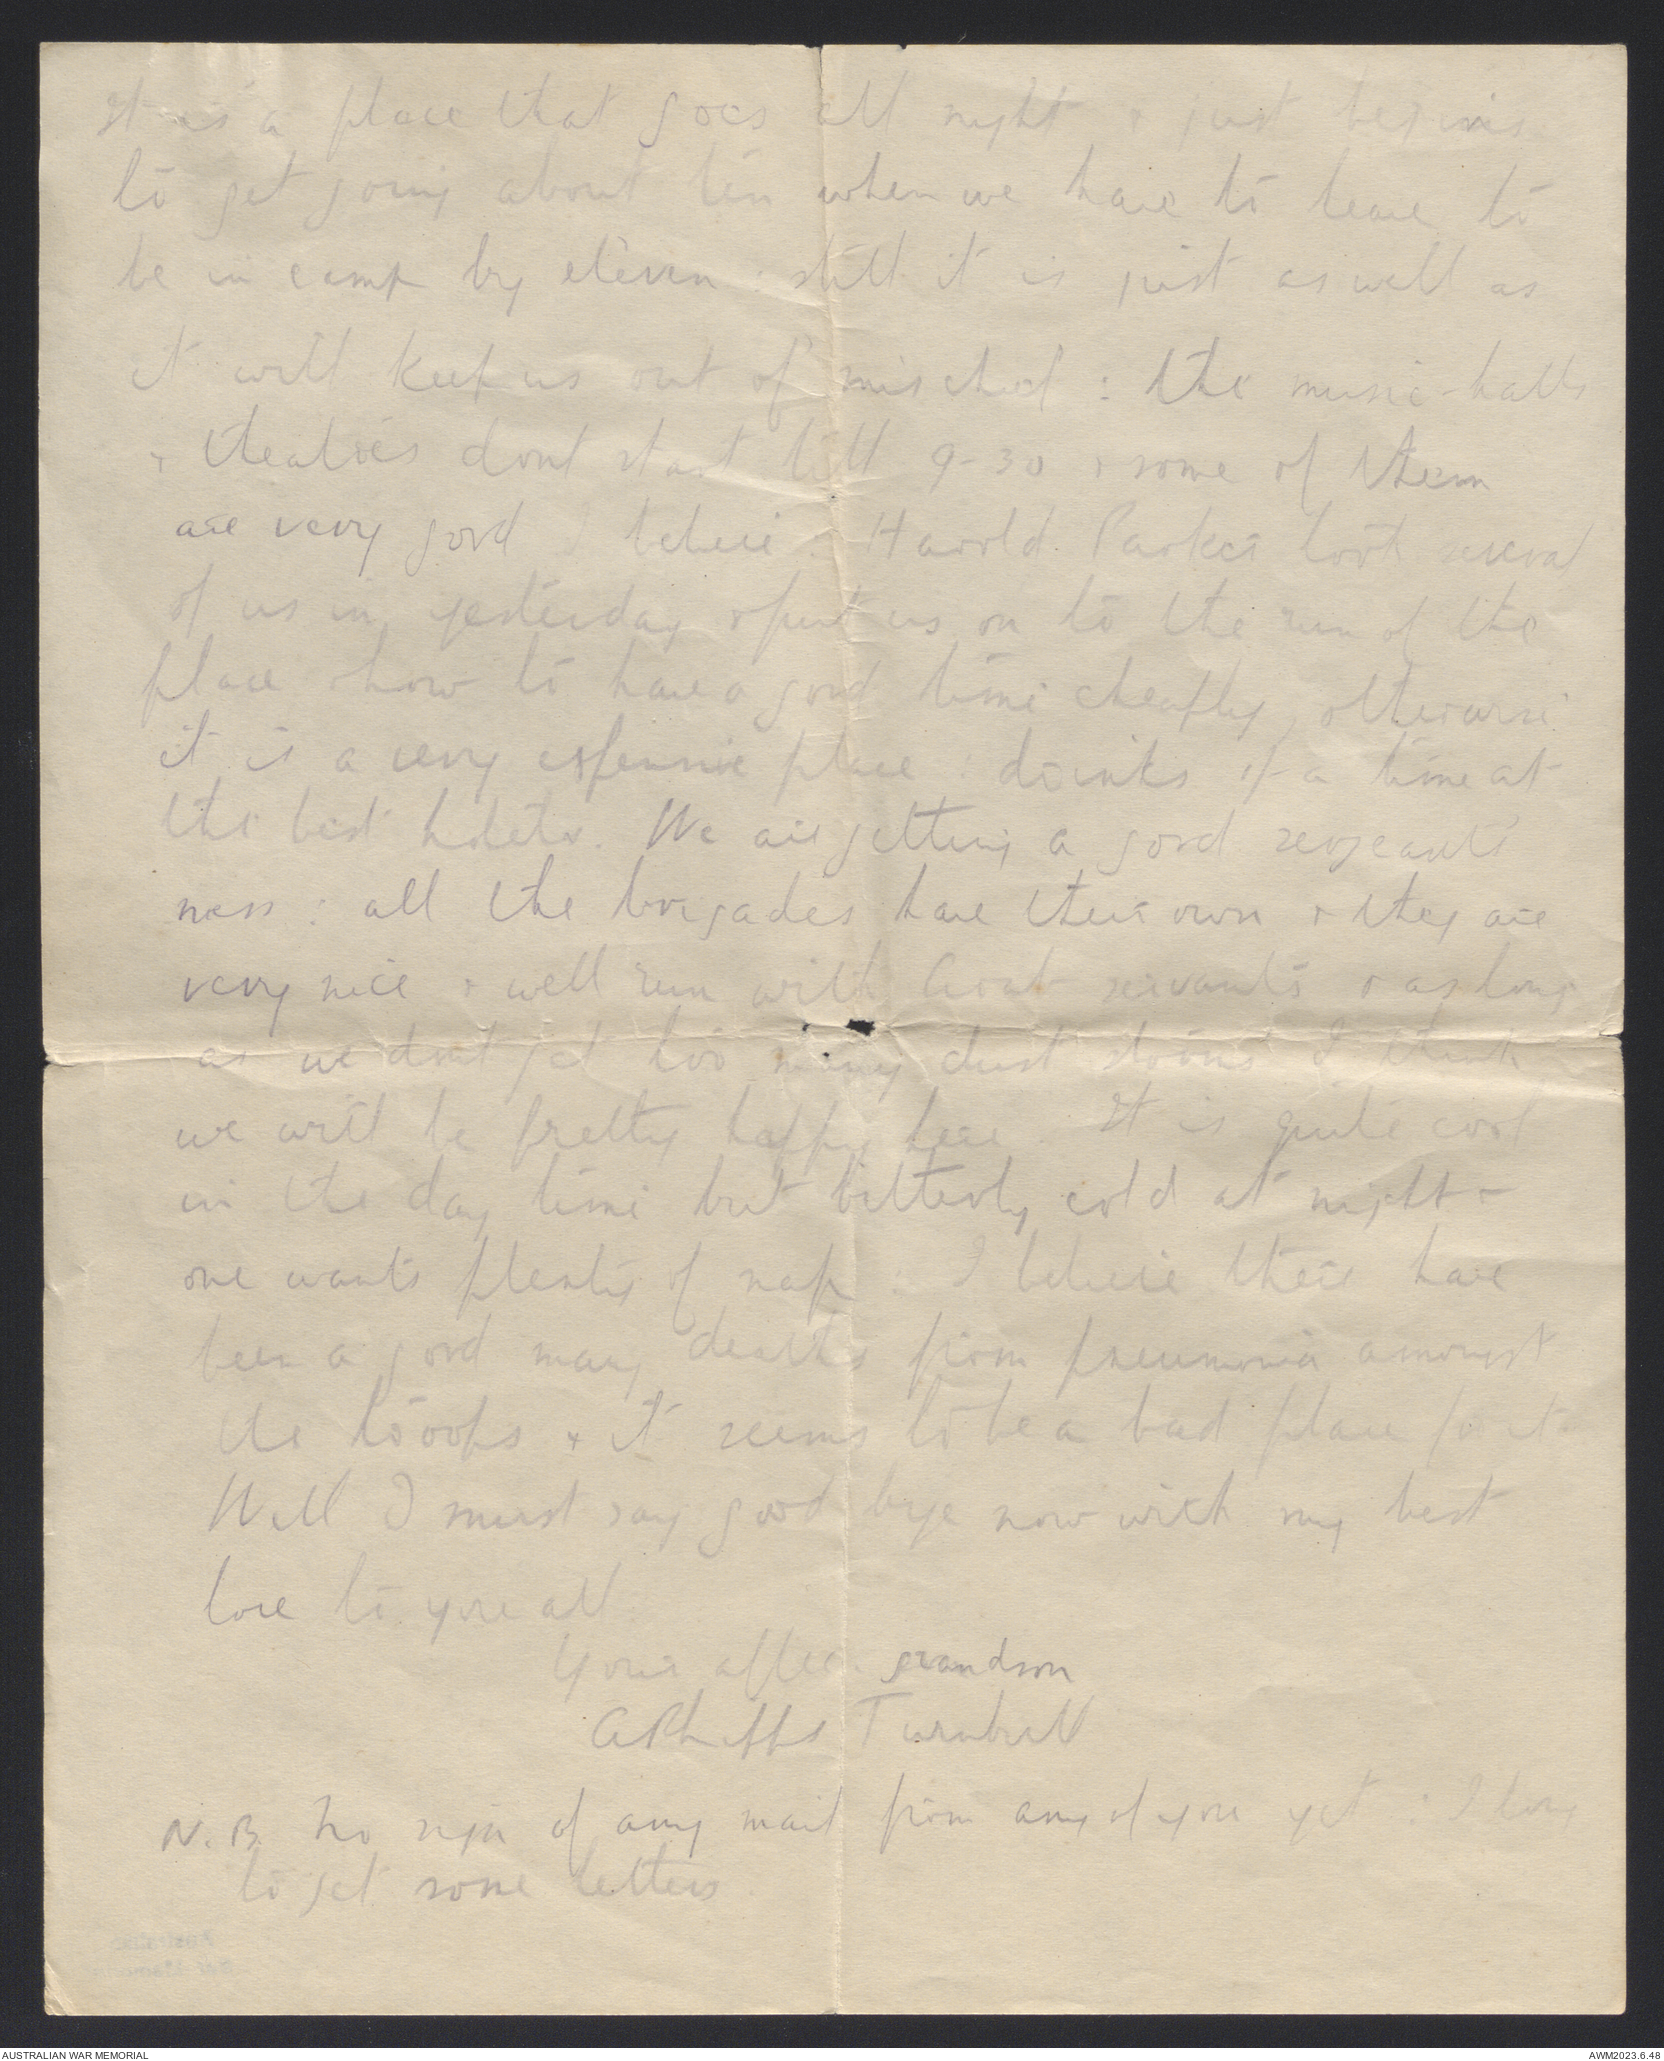 It is a place that goes all night & just begins
to get going about ten when we have to leave to
be in camp by eleven : still it is just as well as
it will keep us out of mischief : the music-halls
& theatres dont start till 9-30 & some of them
are very good I believe. Harold Parker took several
of us in yesterday & put us on to the run of the
place & how to have a good time cheaply, otherwise
it is a very expensive place : drinks 1/- a time at
the best hotels. We are getting a good sergeants
mess : all the brigades have their own & they are
very nice & well run with Arab servants & as long
as we dont get too many dust storms I think
we will be pretty happy here. It is quite cool
in the day time but bitterly cold at night &
one wants plenty of nap. I believe there have
been a good many deaths from pneumonia amongst
the troops & it seems to be a bad place for it.
Well I must say good bye now with my best
love to you all.
Your affec. grandson
A Phipps Turnbull
N.B. No sign of any mail from any of you yet : I long
to get some letters.
Australian
War Memorial
AUSTRALIAN WAR MEMORIAL
AWM2023.6.48